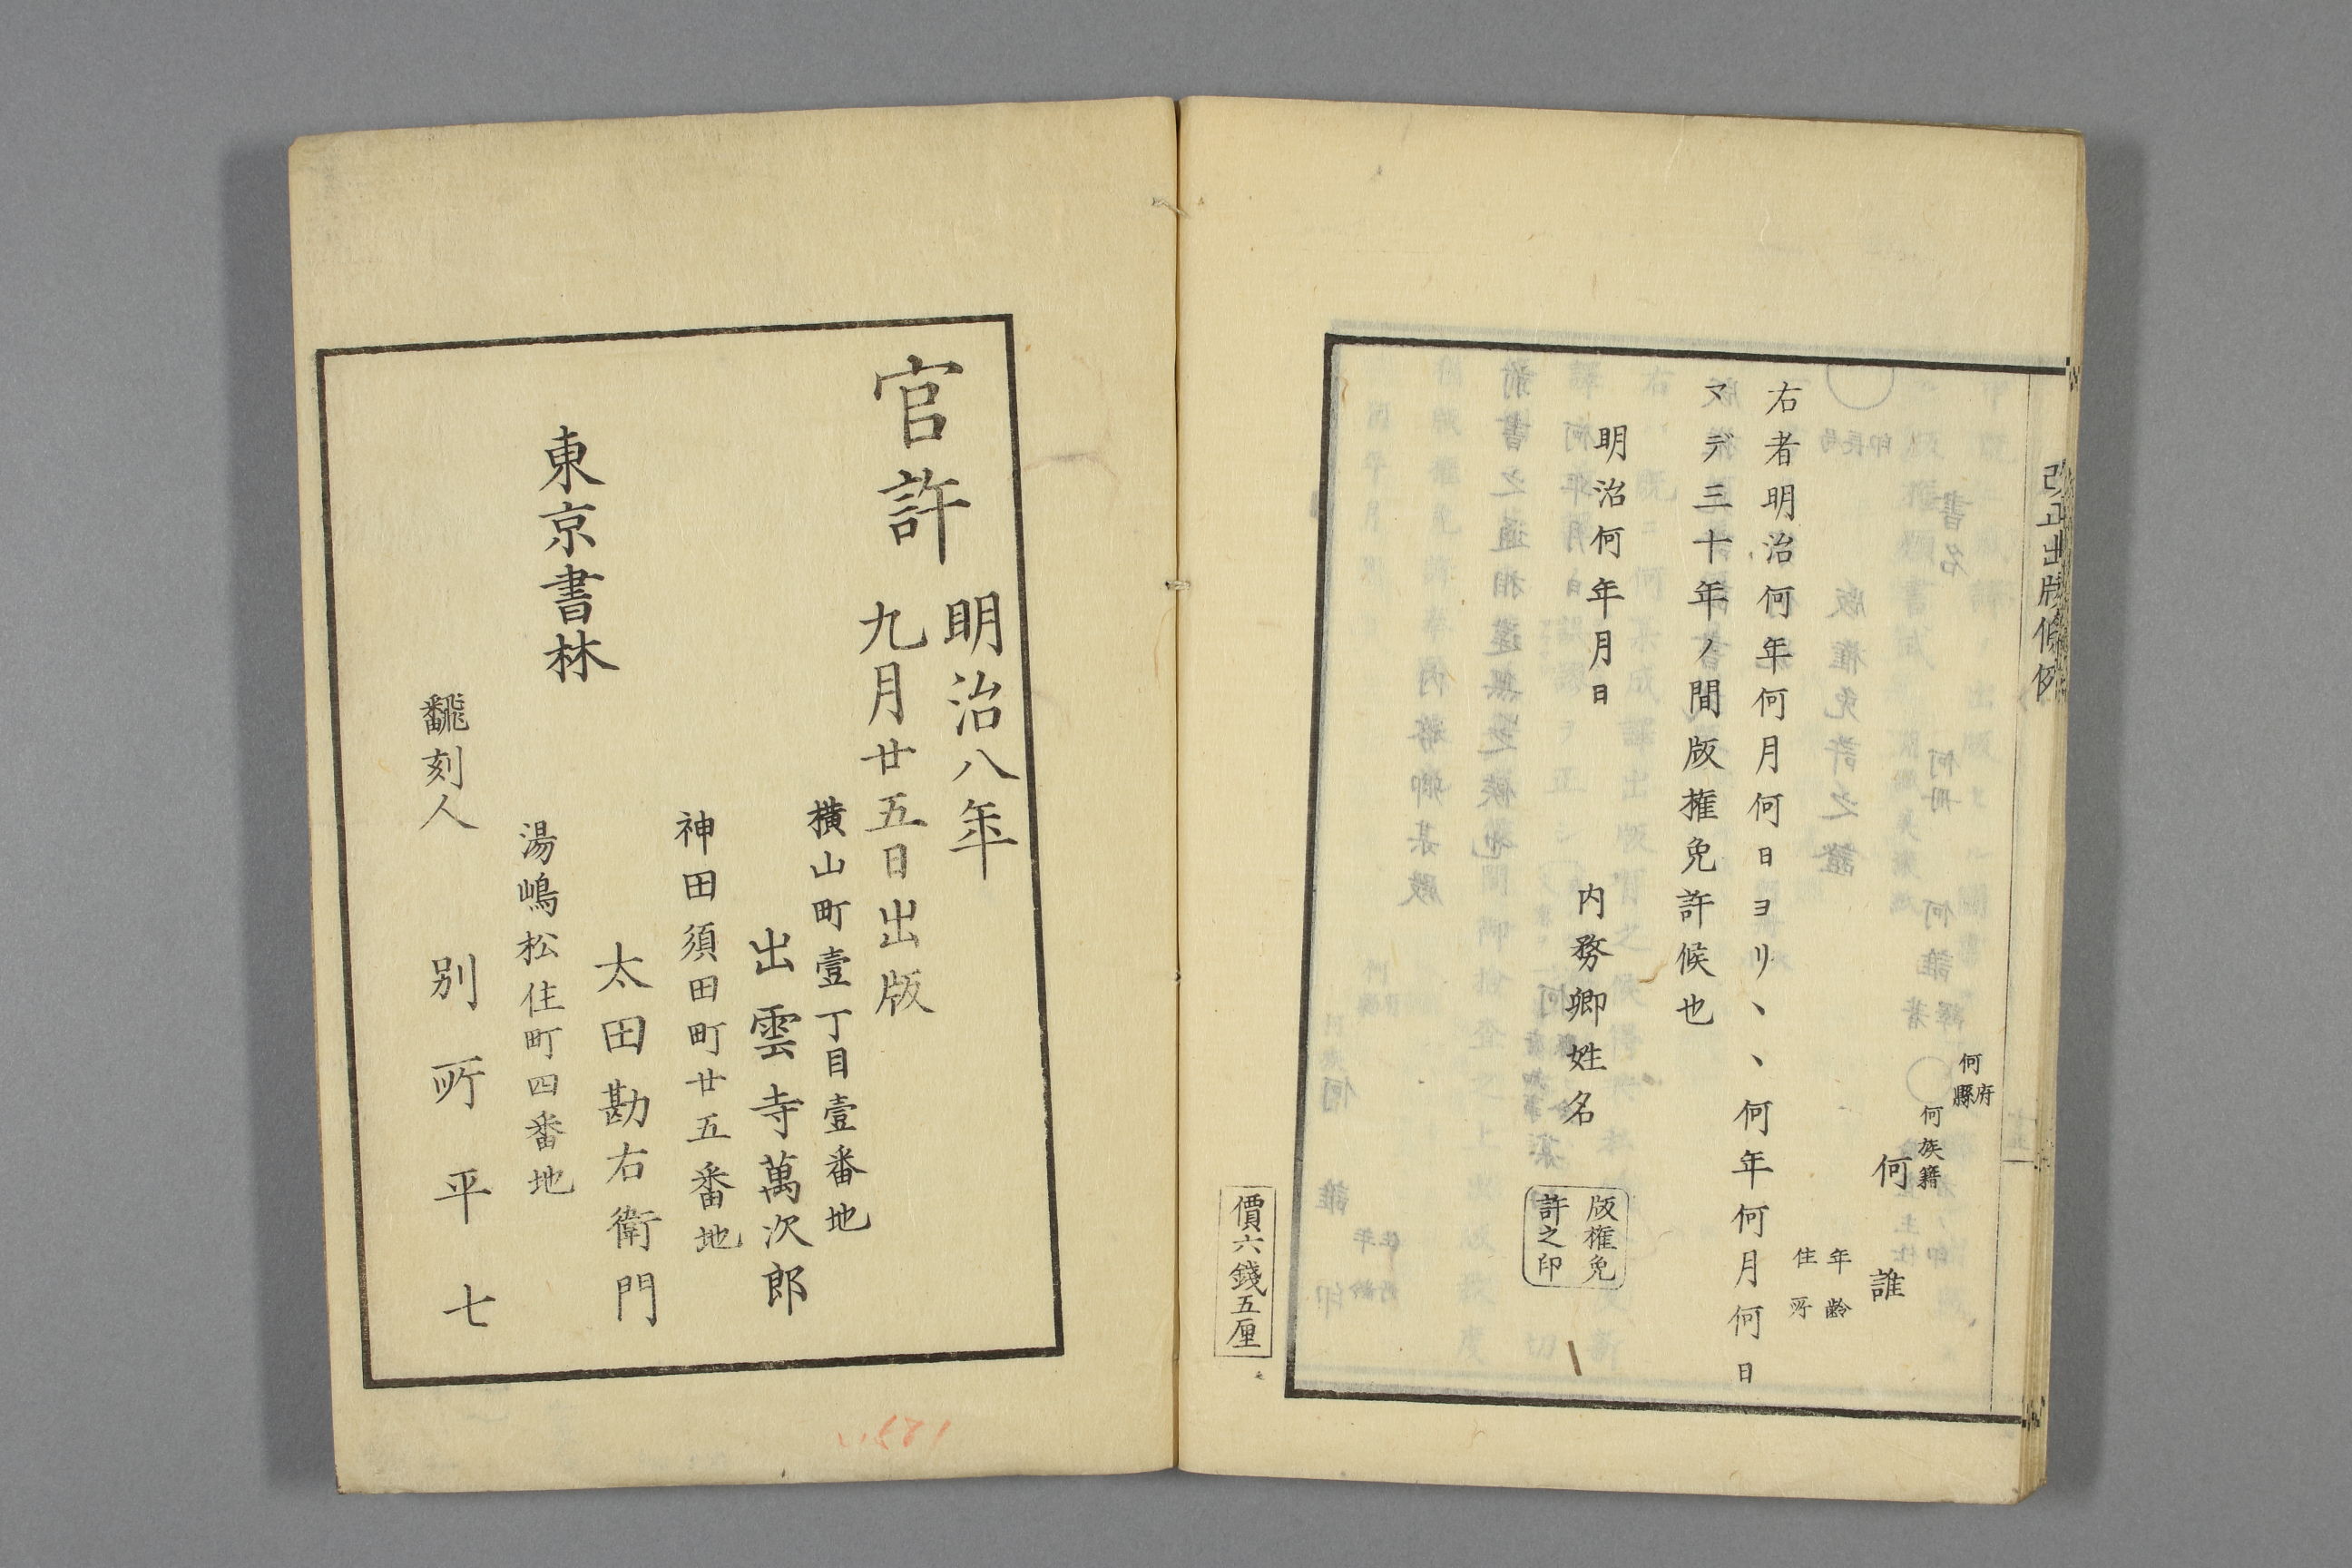 改正出版條例
何府縣
何族籍
何誰
年齢
住所
右者明治何年何月何日ヨリヽヽ何年何月何日
マデ三十年ノ間版權免許候也
明治何年月日
内務卿姓名
版權免
許之印
價六錢五厘
官許
明治八年
九月廿五日出版
横山町壹丁目壹番地
出雲寺萬次郎
神田須田町廿五番地
太田勘右衛門
東京書林
湯嶋松住町四番地
飜刻人
別所平七